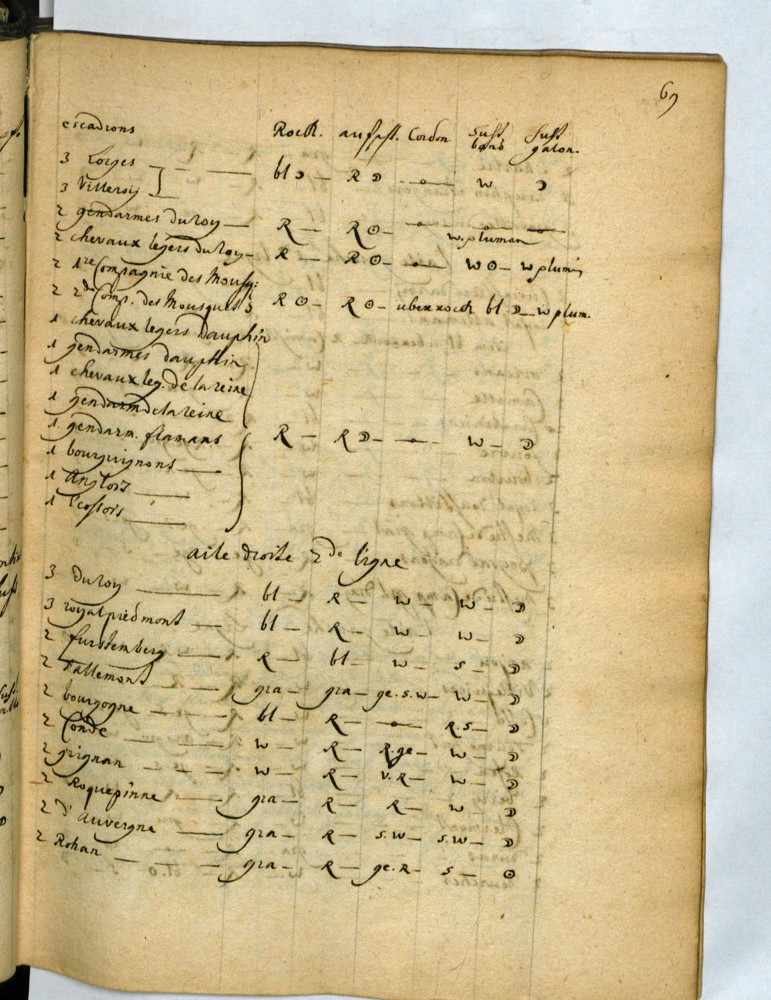 69
escadrons Rock. auffsl. Cordon hutt band hutt galon.
3 Lorges — bl ☽ R ☽ — o — w ☽
3 Villeroij
2 gendarmes du roy — R — R ☉ — — o — —
2 chevaux legers du roy — R — R ☉ — — o — w. pluman
w ☉ — w plum
2 1re Compagnie des Mousq:
2 2de Comp. des Mousquet: R ☉ — R ☉ — uber rock bl ☽ — w plum.
1 chevaux legers dauphin
1 gendarmes dauphin
1 chevaux leg. de la reine
1 gendarm de la reine
1 gendarm. flamans R — R ☽ — — o — w — ☽
1 bourguignons —
1 Anglois —
1 Ecossois —
aile droite 2de ligne
3 du roy — bl — R — w — w — ☽
3 royal piedmont — bl — R — w — w — ☽
2 furstemberg — R — bl — w — s — ☽
2 tallemont — gra — gra — ge. s. w — w — ☽
2 bourgogne — bl — R — — o — R. s — ☽
2 Condé — w — R — R. ge — w — ☽
2 grignan — w — R — v. R — w — ☽
2 Roquepinne — gra — R — R — w — ☽
2 d'Auvergne — gra — R — s. w — s. w — ☽
2 Rohan — gra — R — ge. R — s — ☉